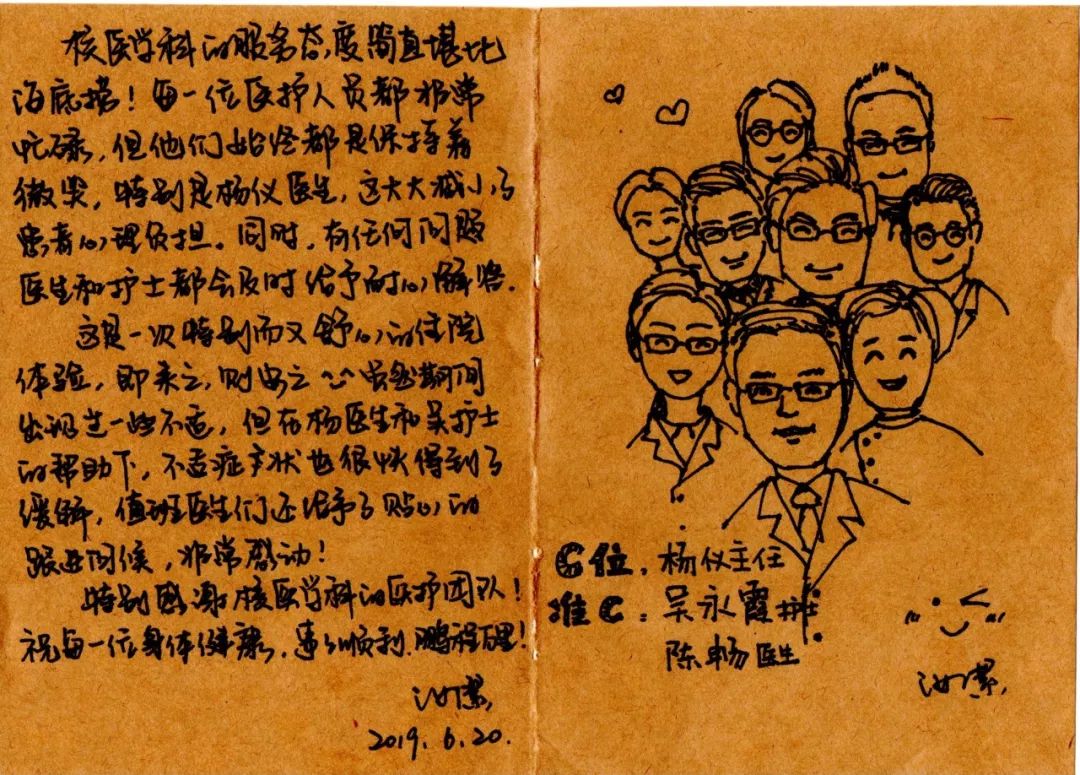 核医学科的服务态度简直堪比
海底捞！每一位医护人员都非常
忙碌，但他们始终都是保持着
微笑，特别是杨仪医生，这大大减小了
患者心理负担。同时，有任何问题
医生和护士都会及时给予耐心解答.
这是一次特别而又舒心的住院
体验，即来之，则安之 虽然期间
出现过一些不适，但在杨医生和吴护士
的帮助下，不适症状也很快得到了
缓解，值班医生们还给予了贴心的
跟进问候，非常感动！
特别感谢核医学科的医护团队！
祝每一位身体健康，事事顺利.鹏程万里！
汝潔,
2019.6.20.
C位.杨仪主任
准C：吴永霞护士
陈畅医生
汝潔,